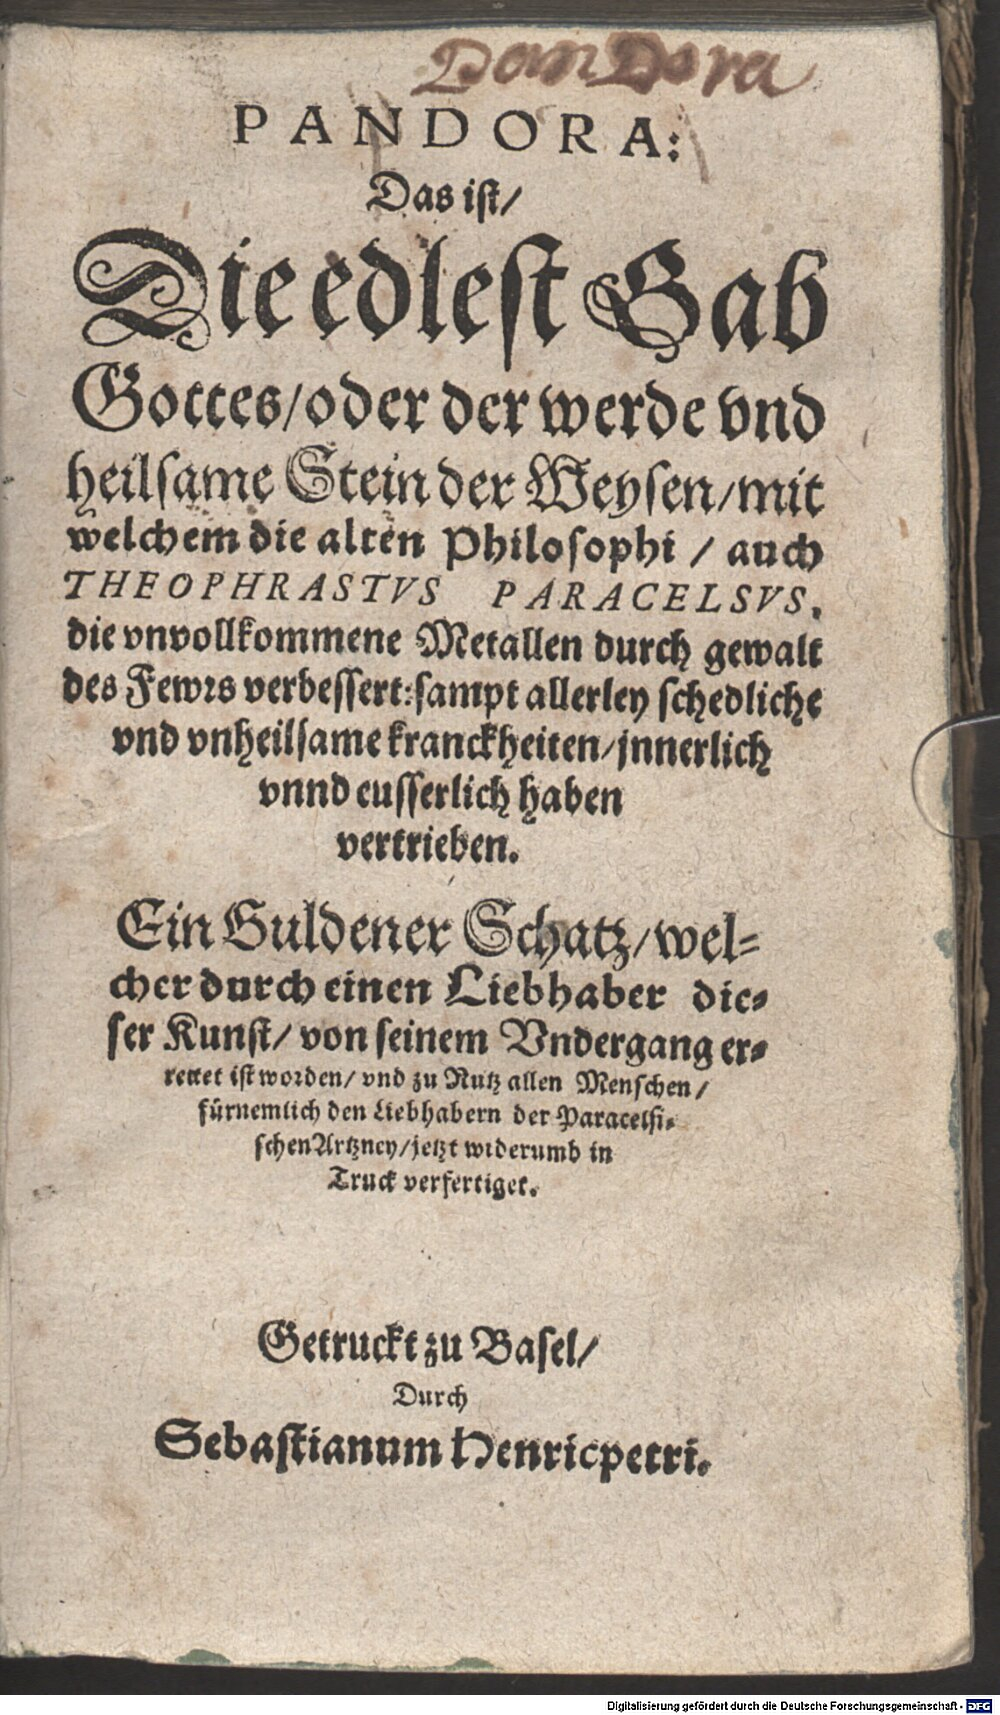 Pandora
PANDORA:
Das ist/
Die edlest Gab
Gottes/oder der werde vnd
heilsame Stein der Weysen/mit
welchem die alten Philosophi / auch
THEOPHRASTVS PARACELSVS,
die vnvollkommene Metallen durch gewalt
des Fewrs verbessert: sampt allerley schedliche
vnd vnheilsame kranckheiten/jnnerlich
vnnd eusserlich haben
vertrieben.
Ein Guldener Schatz/wel-
cher durch einen Liebhaber die-
ser Kunst/ von seinem Vndergang er-
rettet ist worden/ vnd zu Nutz allen Menschen/
fürnemlich den Liebhabern der Paracelsi-
schen Artzney/jetzt widerumb in
Truck verfertiget.
Getruckt zu Basel/
Durch
Sebastianum Henricpetri.
Digitalisierung gefördert durch die Deutsche Forschungsgemeinschaft - DFG